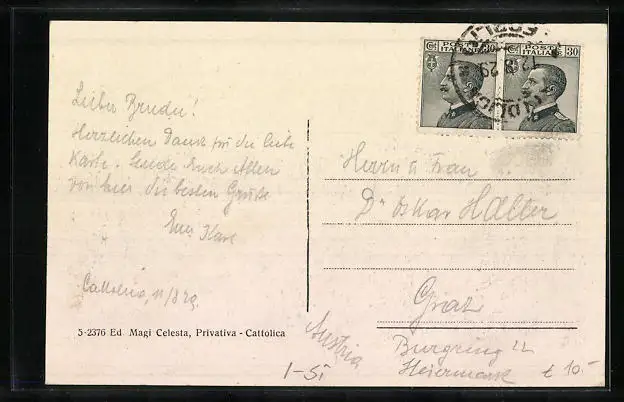 POSTE ITALIANE 30
POSTE ITALIANE 30
FORLI
12.8.29
Lieber Bruder!
Herzlichen Dank für die liebe
Karte. Sende Euch Allen
von hier die besten Grüße
Euer Karl
Cattolica, 11/8 29.
5-2376 Ed. Magi Celesta, Privativa - Cattolica
Herrn u Frau
Dr Oskar Haller
Graz
Burgring 22
Steiermark
Austria
1-SI
£ 10.-